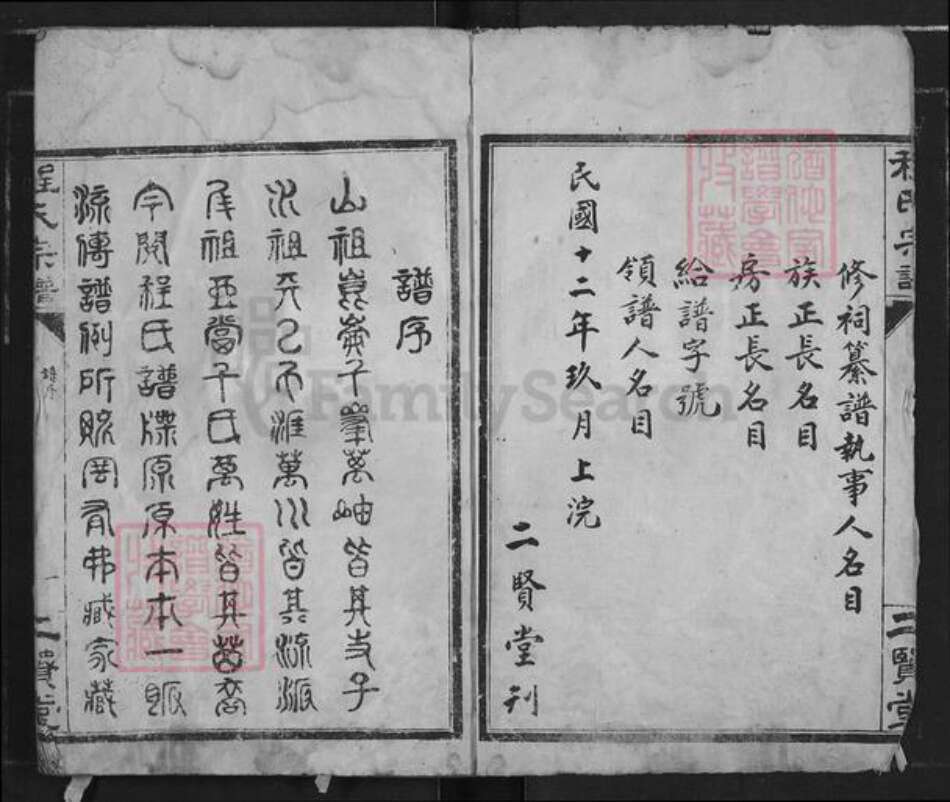 程氏宗譜
修祠纂譜執事人名目
族正長名目
房正長名目
給譜字號
領譜人名目
民國十二年玖月上浣
二賢堂刋
二賢堂
譜序
山祖崑崙千峯萬岫皆其支子
水祖天乙不淮萬川皆其流派
民祖亞當千氏萬姓皆其苗裔
今閱程氏譜牒原原本本一脈
流傳譜例所貽罔有弗臧家藏
程氏宗譜
譜序
一
二賢堂
FamilySearch